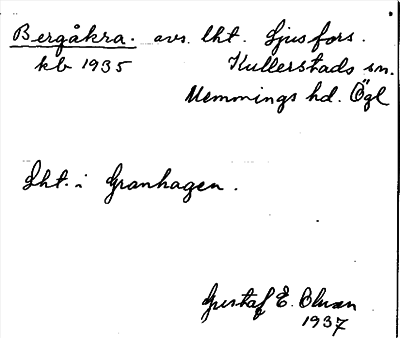 Bergåkra. avs. lht. Ljusfors.
kb 1935 Kullerstads sn.
Memmings hd. Ögl
Lht. i Granhagen.
Gustaf E. Olman
1937